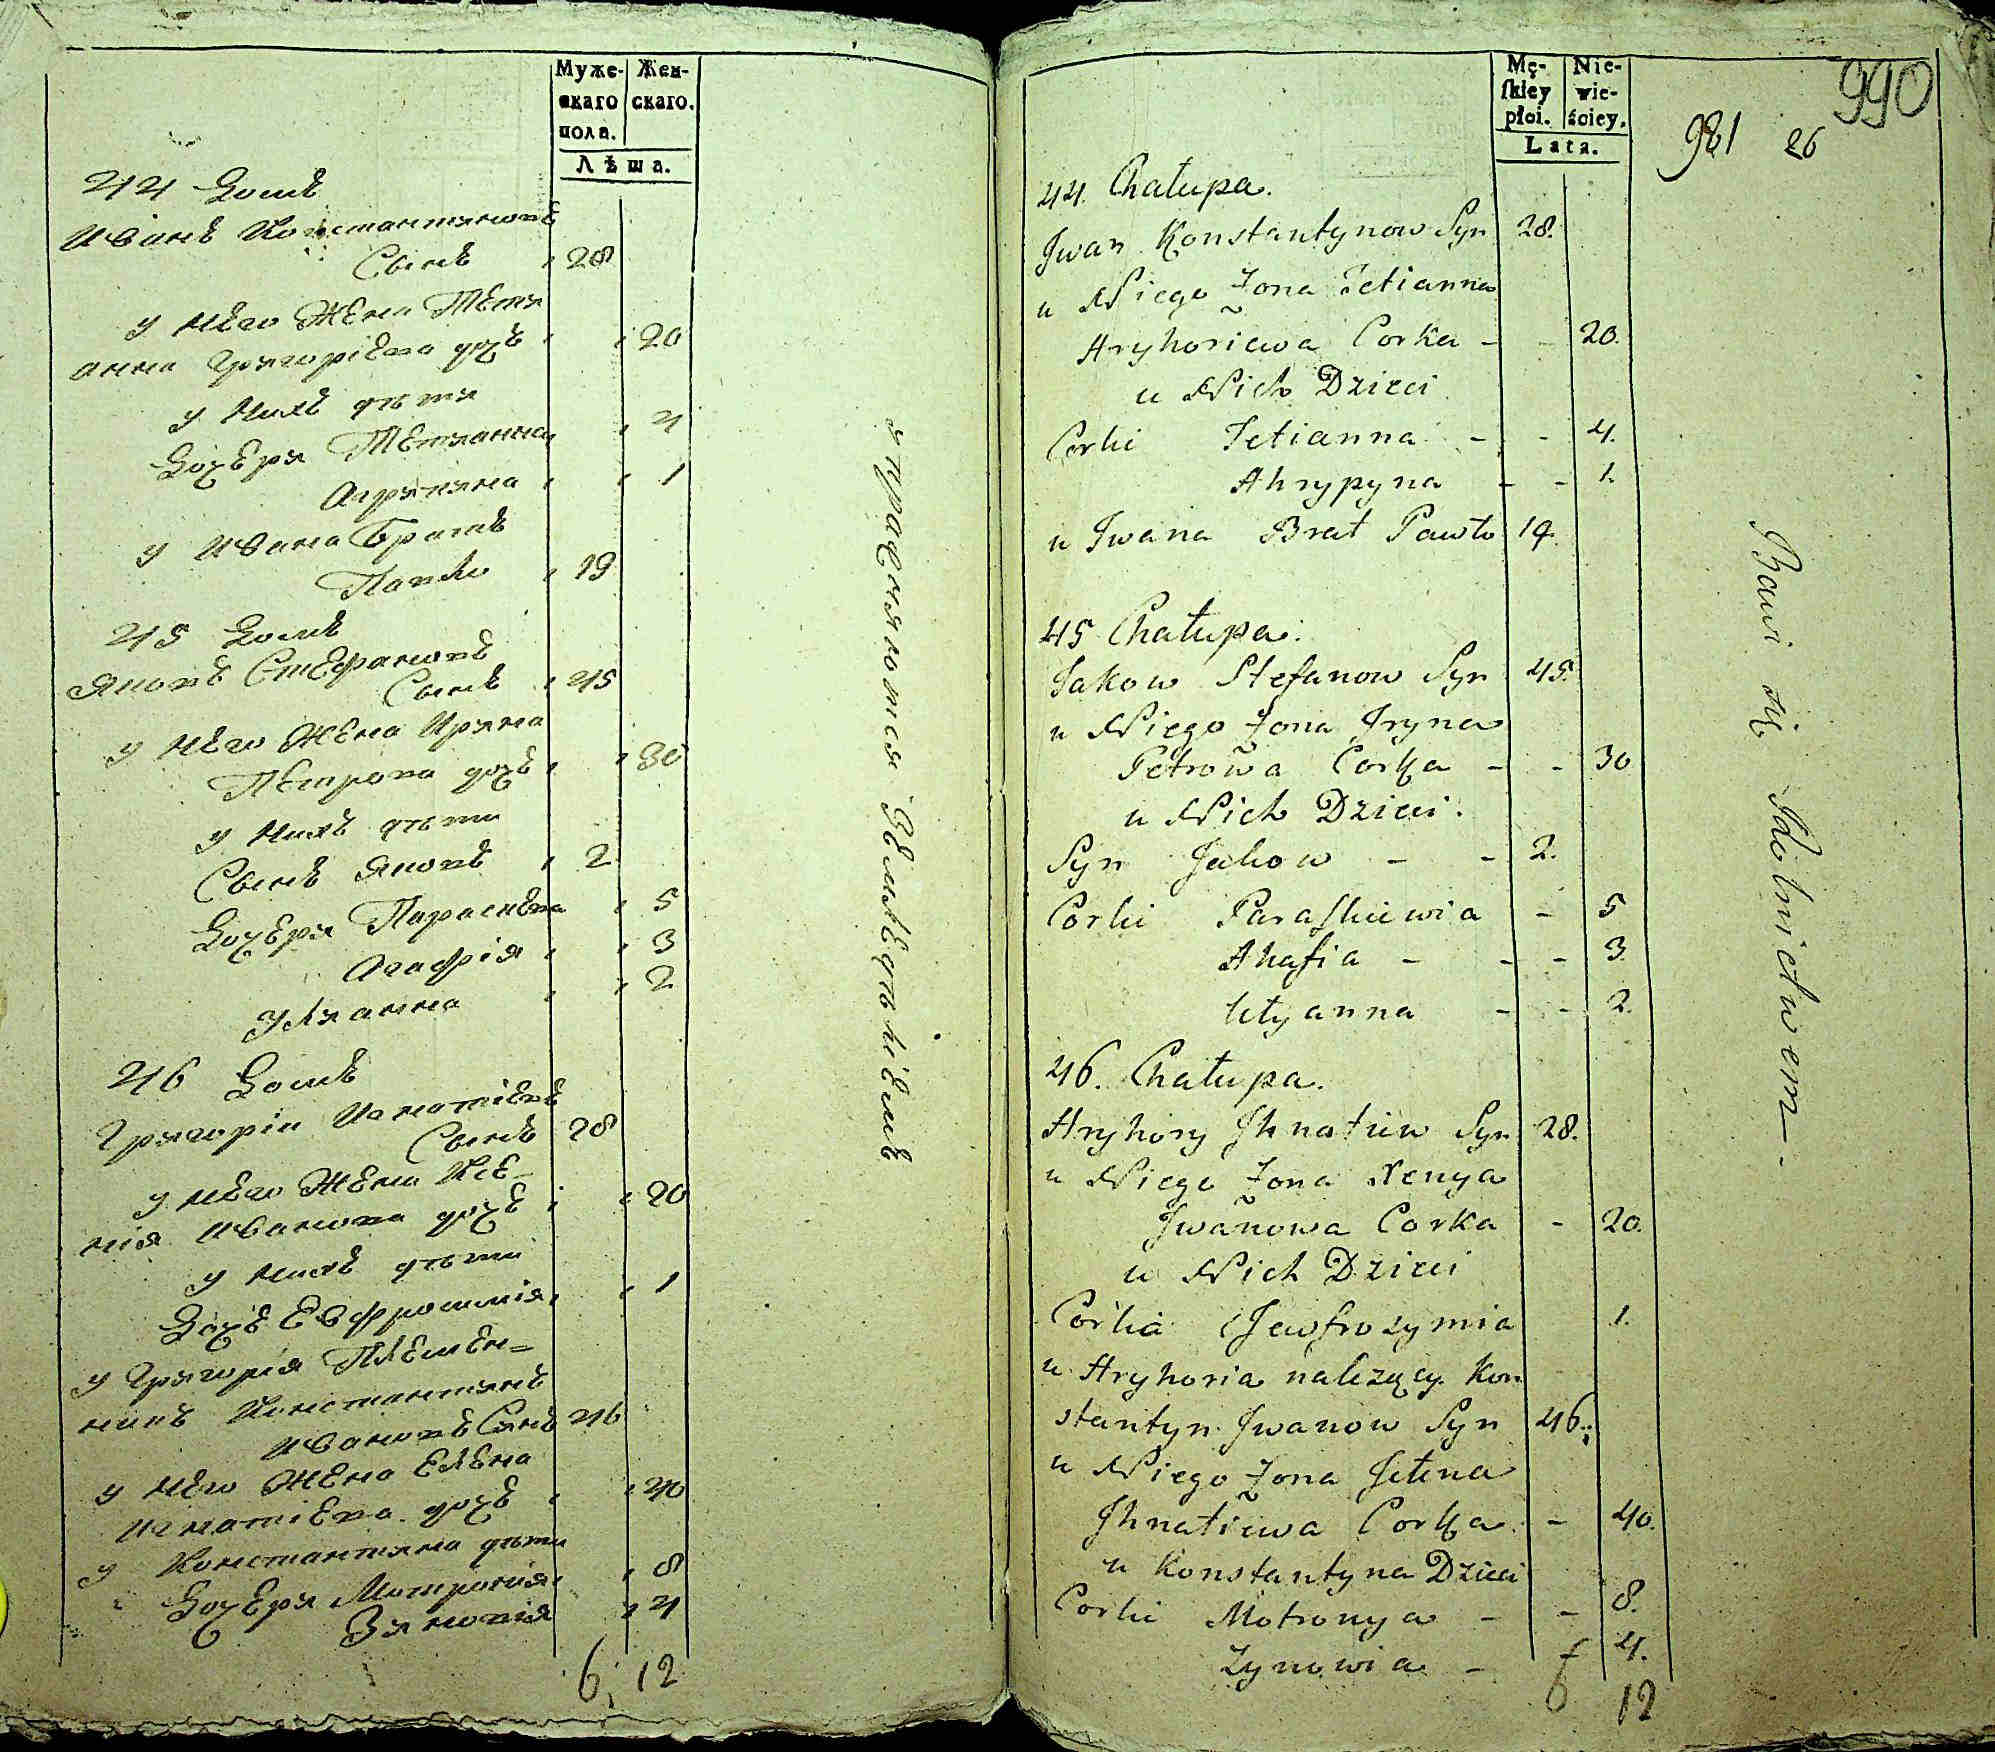 Муже-
скаго
пола.
Жен-
скаго.
Лѣта.
44 Домъ
Иванъ Константиновъ
Сынъ 28
у него Жена Тетя
анна Григоріева дочь 20
у нихъ дѣти
Дочери Тетянна 4
Агрипина 1
у Ивана Братъ
Павло 19
45 Домъ
Яковъ Стефановъ
Сынъ 45
у него Жена Ирина
Петрова дочь 30
у нихъ дѣти
Сынъ Яковъ 2
Дочери Параскева 5
Агафія 3
Улянна 2
46 Домъ
Григоріи Игнатіевъ
Сынъ 28
у него Жена Ксе-
нія Иванова дочь 20
у нихъ дѣти
Дочь Евфросинія 1
у Григорія Племен-
никъ Константинъ
Ивановъ Сынъ 46
у него Жена Елена
Игнатіева дочь 40
у Константина дѣти
Дочери Мотронія 8
Зиновія 4
6, 12
упражняются Земледѣліемъ
990
981 26
Mę-
skiey
płci.
Nie-
wie-
ściey.
Lata.
44. Chałupa.
Jwan Konstantynow Syn 28.
u Niego Żona Tetianna
Hryhoriewa Corka - - 20.
u Nich Dzieci
Corki Tetianna - - 4.
Ahrypyna - - 1.
u Jwana Brat Pawło 19.
45 Chałupa.
Jakow Stefanow Syn 45.
u Niego Żona Jryna
Petrowa Corka - - 30
u Nich Dzieci.
Syn Jakow - - 2.
Corki Paraskiewia - 5
Ahafia - - - 3.
Ulyanna - - 2.
46. Chałupa.
Hryhory Jhnatiew Syn 28.
u Niego Żona Xenya
Jwanowa Corka - 20.
u Nich Dzieci
Córka Jewfrozymia 1.
u Hryhoria należący Kon
stantyn Jwanow Syn 46.
u Niego Żona Jelena
Jhnatiewa Corka - 40.
u Konstantyna Dzieci
Corki Motronya - - 8.
Zynowia - - 4.
6 12
Bawi się Rolnictwem.